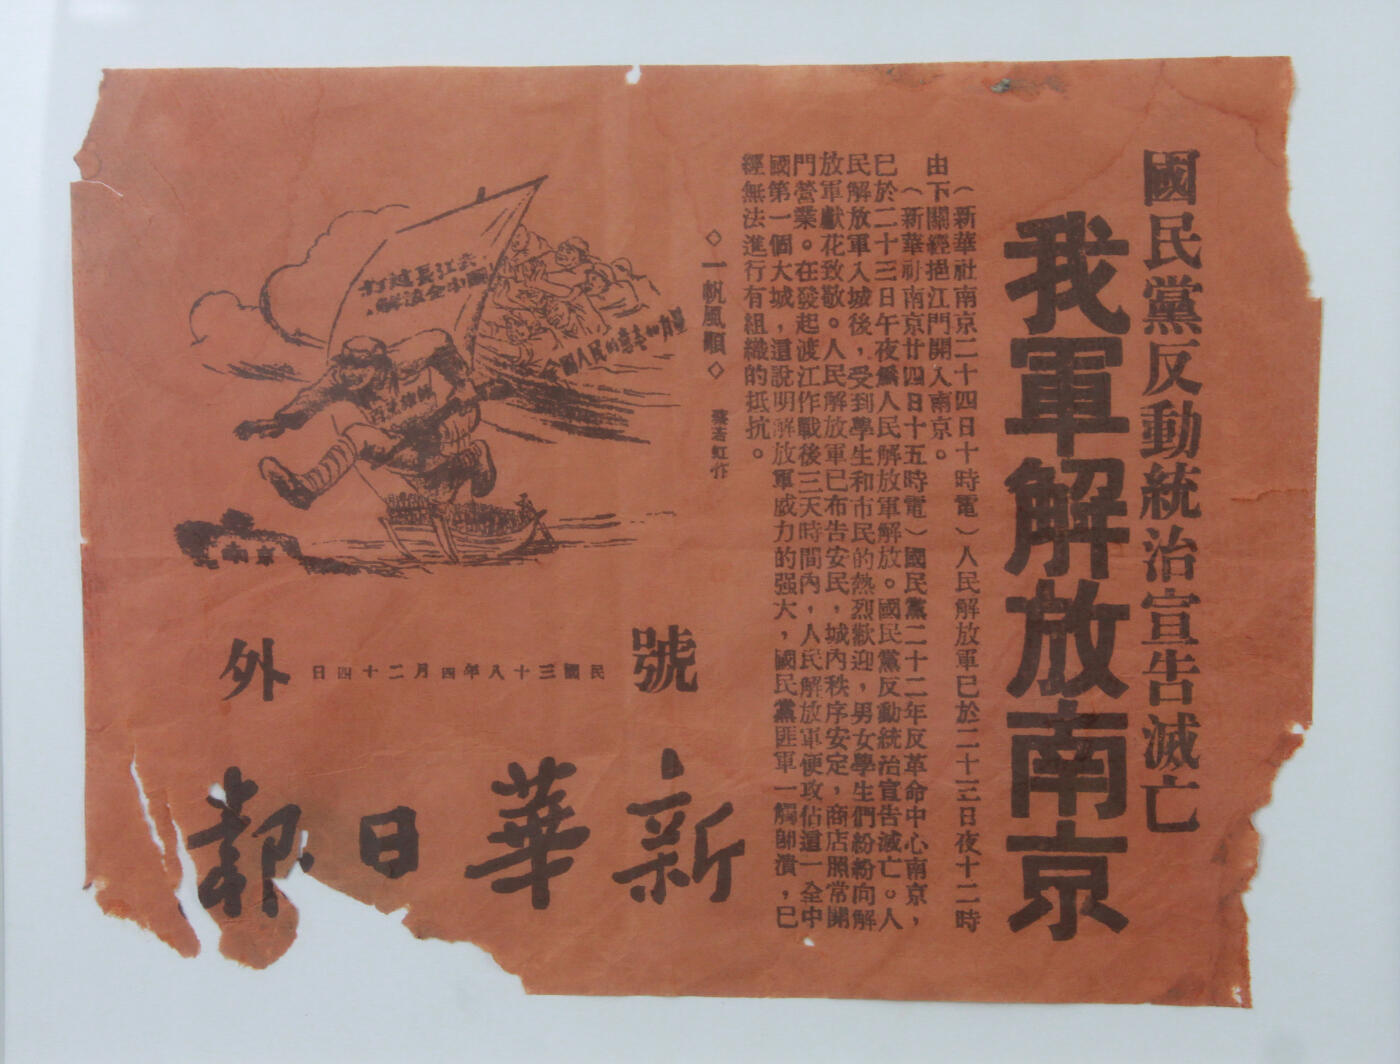 國民黨反動統治宣告滅亡
我軍解放南京
（新華社南京二十四日十時電）人民解放軍已於二十三日夜十二時
由下關經挹江門開入南京。
（新華社南京廿四日十五時電）國民黨二十二年反革命中心南京，
已於二十三日午夜為人民解放軍解放。國民黨反動統治宣告滅亡。人
民解放軍入城後，受到學生和市民的熱烈歡迎，男女學生們紛紛向解
放軍獻花致敬。人民解放軍已布告安民，城內秩序安定，商店照常開
門營業。在發起渡江作戰後三天時間內，人民解放軍便攻佔這一全中
國第一個大城，這說明解放軍威力的强大，國民黨匪軍一觸即潰，已
經無法進行有組織的抵抗。
◇一帆風順◇
蔡若虹作
打過長江去，
解放全中國！
全國人民的意志和希望
南京
號外
民國三十八年四月二十四日
新華日報